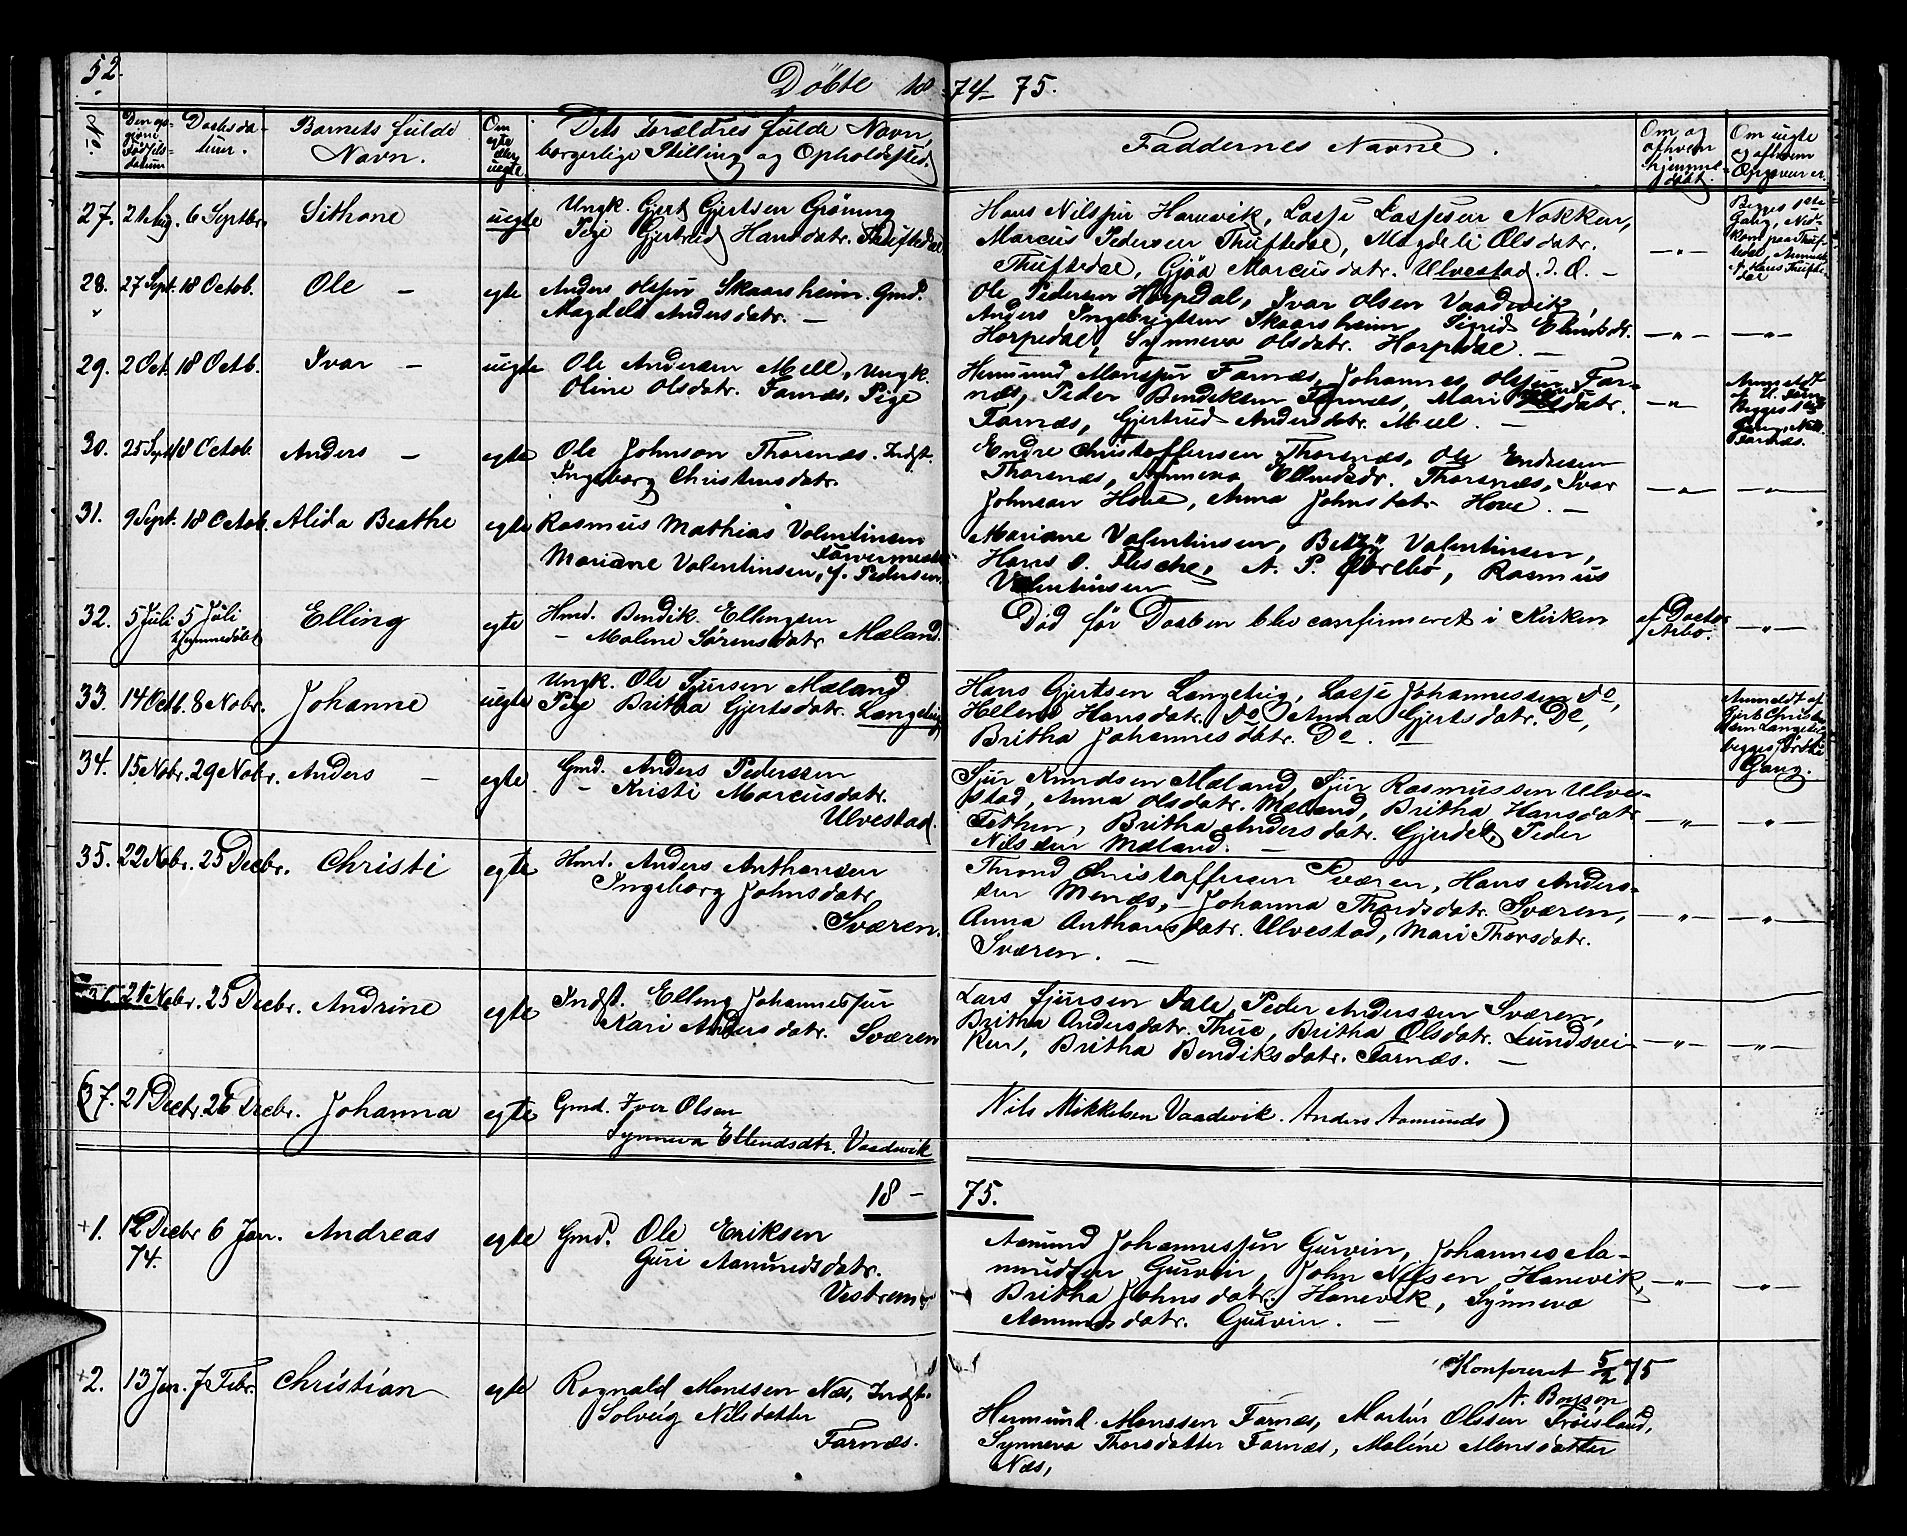 52.
Döbte 1874-75.
No.
Den op-
givne
Födsels-
datum
Daabsda-
tum.
Barnets fulde
Navn.
Om
egte
eller
uegte
Dets Forældres fulde Navn,
borgerlige Stilling og Opholdssted
Faddernes Navne.
Om og
af hvem
hjemme-
döbt
Om uegte
og af hvem
Opgaven er.
27. 21 Aug. 6 Septbr. Sithane uegte Ungk. Gjert Gjertsen Gröning
Pige Gjertrud Hansdatr. Thuftedal
Hans Nilssen Hanevik, Lasse Lassesen Nokken,
Marcus Pedersen Thuftedal, Magdeli Olsdatr.
Thuftedal, Gjöa Marcusdatr. Ulvestad. d. O. -
-"-
Begges 1ste
Gang,
28. 27 Sept. 18 Octob. Ole - egte Anders Olssen Skaarsheim. Gmd.
Magdela Andersdatr. -
Ole Pedersen Horpedal, Ivar Olsen Vaadevik,
Anders Ingebrigtsen Skaarsheim, Sigrid Elendsdr.
Horpedal, Synneva Olsdatr. Horpedal. -
-"- -"-
29. 2 Oct. 18 Octb. Ivar - uegte Ole Andersen Mell, Ungk.
Oline Olsdatr. Farnæs, Pige
Hermund Monssen Farnæs, Johannes Olssen Far-
næs, Peder Bendiksen Farnæs, Mari datr.
Farnæs, Gjertrud Andersdatr. Mell. -
-"-
Anmeldt
Begges 1ste
Gang,
Farnæs.
30. 25 Sept. 18 Octob. Anders - egte Ole Johnson Thorsnæs. Indst.
Ingeborg Christensdatr.
Endre Christoffersen Thorsnæs, Ole Endresen
Thorsnæs, Synneva Ellendsdr. Thorsnæs, Ivar
Johnsen Hove, Anna Johnsdatr Hove. -
-"- -"-
31. 9 Sept. 18 Octob. Alida Beathe egte Rasmus Mathias Valentinsen
Farvermester
Mariane Valentinsen, f. Pedersen.
Mariane Valentinsen, Betzy Valentinsen,
Hans O. Flesche, A. P. Övrebö, Rasmus
Valentinsen
32. 5 Juli 5 Juli
hjemmedöbt
Elling egte Hmd. Bendik Ellingsen
- Malene Sörensdatr Mæland.
Död för Daaben blev confirmeret i Kirken
af Doctor
Arbo.
-"-
33. 14 Octb. 8 Nobr. Johanne uegte Ungk. Ole Sjursen Mæland
Pige Britha Gjertsdatr. Langeteig,
Hans Gjertsen Langeteig, Lasse Johannessen Do,
Hellene Hansdatr. Do, Anna Gjertsdatr. Do,
Britha Johannesdatr. Do. -
Anmeldt af
Gjert Christen-
sen Langeteig
begges förste
Gang.
34. 15 Nobr. 29 Nobr. Anders - egte Gmd. Anders Pederssen
- Kristi Marcusdatr.
Ulvestad.
Sjur Knudsen Mæland, Sjur Rasmussen Ulve-
stad, Anna Olsdatr. Mæland, Britha Hansdatr
Tethun, Britha Andersdatr. Gjerdet, Peder
Nilssen Mæland. -
-"- -"-
35. 22 Nobr. 25 Decbr. Christi egte Hmd. Anders Anthonsen
Ingeborg Johnsdatr
Sværen.
Thrond Christoffersen Sværen, Hans Anders-
sen Menæs, - Johanna Thordsdatr. Sværen,
Anna Anthonsdatr. Ulvestad, Mari Thorsdatr.
Sværen. -
-"- -"-
36. 21 Nobr. 25 Decbr. Andrine egte Indst. Elling Johannessen
Kari Andersdatr. Sværen
Lars Sjursen Dale, Peder Anderssen Sværen,
Britha Andersdatr. Thue, Britha Olsdatr. Lundsvi-
ken, Britha Bendiksdatr. Farnæs. -
-"- -"-
(37. 21 Decbr. 26 Decbr. Johanna egte Gmd. Iver Olsen
Synneva Ellendsdtr. Vaadevik
Nils Mikkelsen Vaadevik. Anders Aamunds)
18-75.
+1. 12 Decbr 6 Jan. Andreas egte Gmd. Ole Eriksen
74.
Guri Aamundsdatr.
Vestrem
Aamund Johannessen Gurvin, Johannes Aa-
mundsen Gurvin, John Nilsen Hanevik,
Britha Johnsdatr. Hanevik, Synneva
Aamundsdatr. Gurvin. -
-"- -"-
+2. 13 Jan. 7 Febr. Christian egte Rognald Monssen Næs, Indst.
Solveig Nilsdatter
Farnæs.
Konfereret 5/2 75
Hermund Monssen Farnæs, Martin Olssen Fröisland,
Synneva Thorsdatter Farnæs, Maléne Monsdatter
Næs,